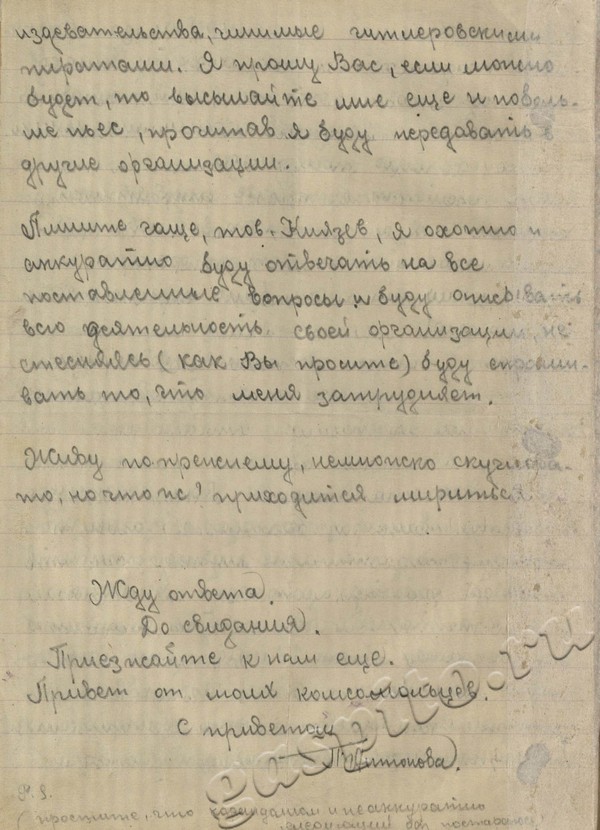 издевательства, чинимые гитлеровскими
пиратами. Я прошу Вас, если можно
будет, то высылайте мне еще и поболь-
ше пьес, прочитав я буду передавать в
другие организации.
Пишите чаще, тов. Князев, я охотно и
аккуратно буду отвечать на все
поставленные вопросы и буду описывать
всю деятельность своей организации, не
стесняясь (как Вы просите) буду спраши-
вать то, что меня затрудняет.
Живу по прежнему, немножко скучнова-
то, но что ж! приходится мириться
Жду ответа.
До свидания.
Приезжайте к нам еще.
Привет от моих комсомольцев.
С приветом
Антонова.
P.S.
(простите, что карандашом и неаккуратно
следующий раз постараюсь
gaspito.ru